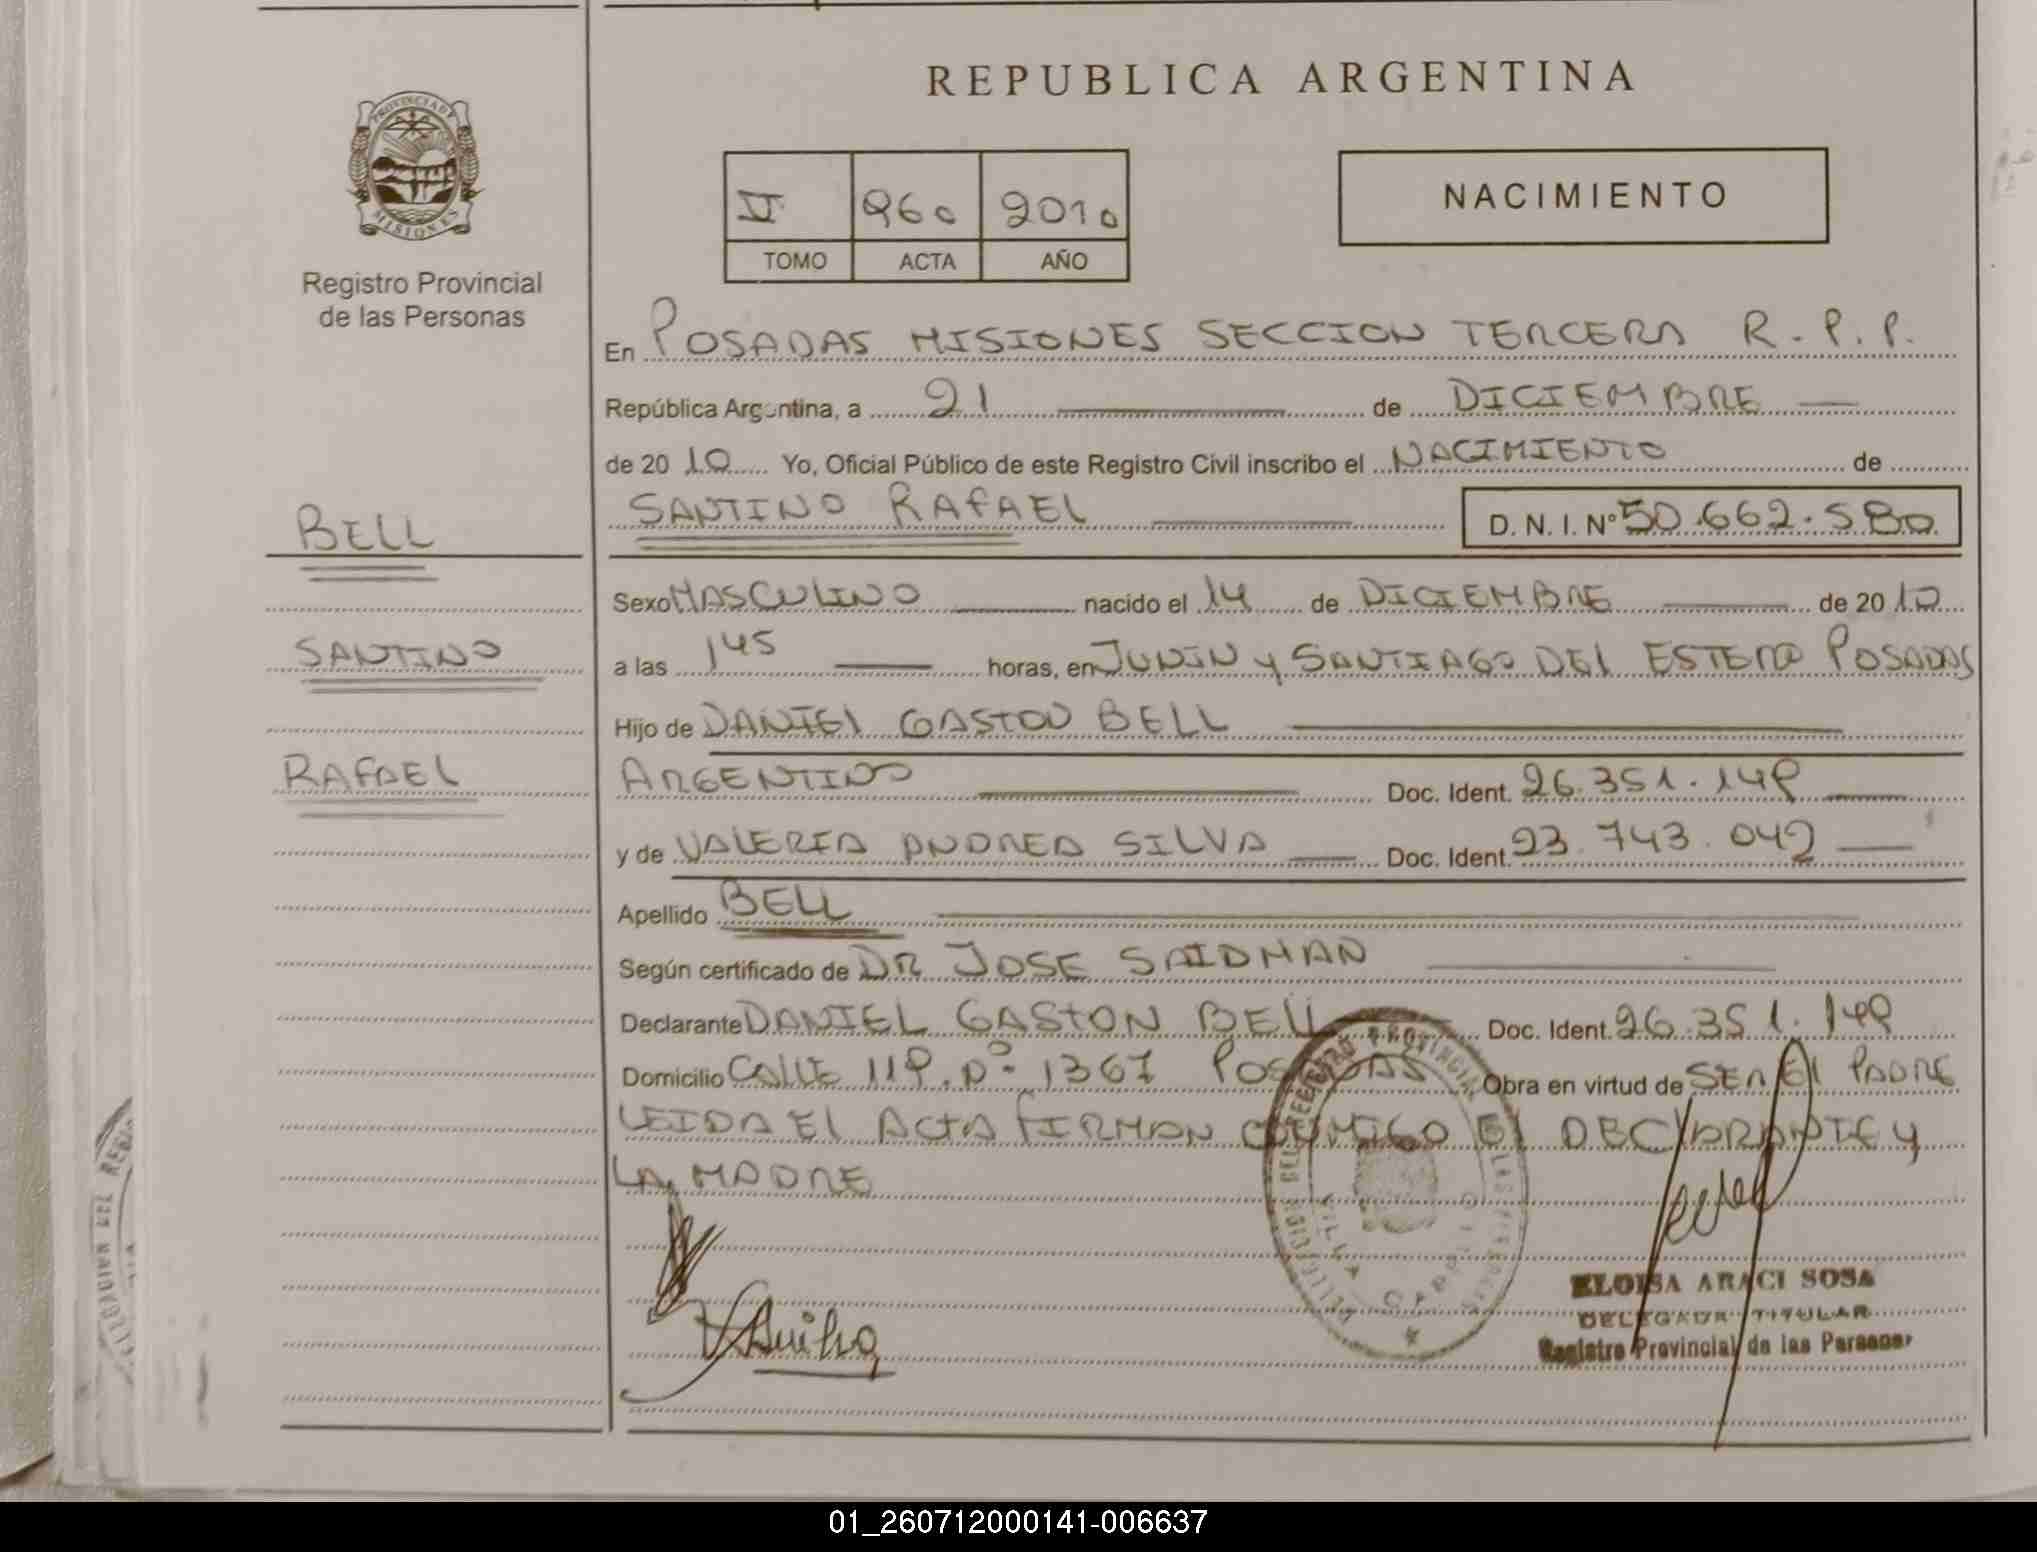 REPUBLICA ARGENTINA
PROVINCIA D MISIONES
Registro Provincial
de las Personas
II 960 2010
TOMO ACTA AÑO
NACIMIENTO
En POSADAS MISIONES SECCION TERCERA R.P.P.
República Argentina, a 21 de DICIEMBRE
de 2010 Yo, Oficial Público de este Registro Civil inscribo el NACIMIENTO de
SANTINO RAFAEL D.N.I. Nº 50.662.580
BELL
SANTINO
RAFAEL
Sexo MASCULINO nacido el 14 de DICIEMBRE de 2010
a las 145 horas, en JUNIN y SANTIAGO DEL ESTERO POSADAS
Hijo de DANIEL GASTON BELL
ARGENTINO Doc. Ident. 26.351.149
y de VALERIA ANDREA SILVA Doc. Ident. 23.743.042
Apellido BELL
Según certificado de DR JOSE SAIDMAN
Declarante DANIEL GASTON BELL Doc. Ident. 26.351.149
Domicilio CALLE 119 Nº 1367 POSADAS Obra en virtud de SER El PADRE
LEIDA El ACTA FIRMAN CONMIGO El DECLARANTE y
LA MADRE
ELOISA ARACI SOSA
DELEGADA TITULAR
Registro Provincial de las Personas
01_260712000141-006637